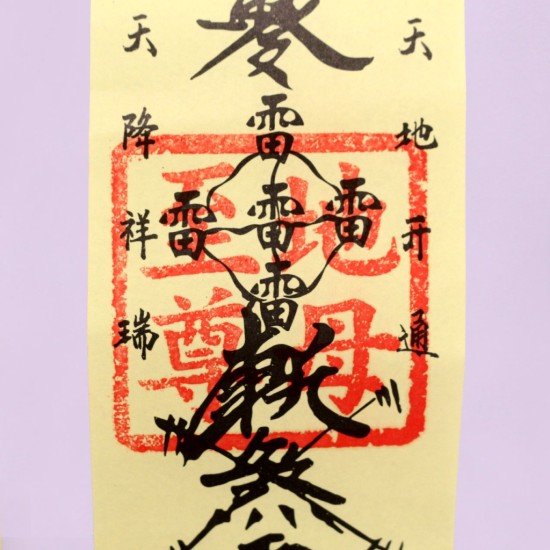 天地开通
雷
雷雷雷
雷
天降祥瑞
地母
至尊